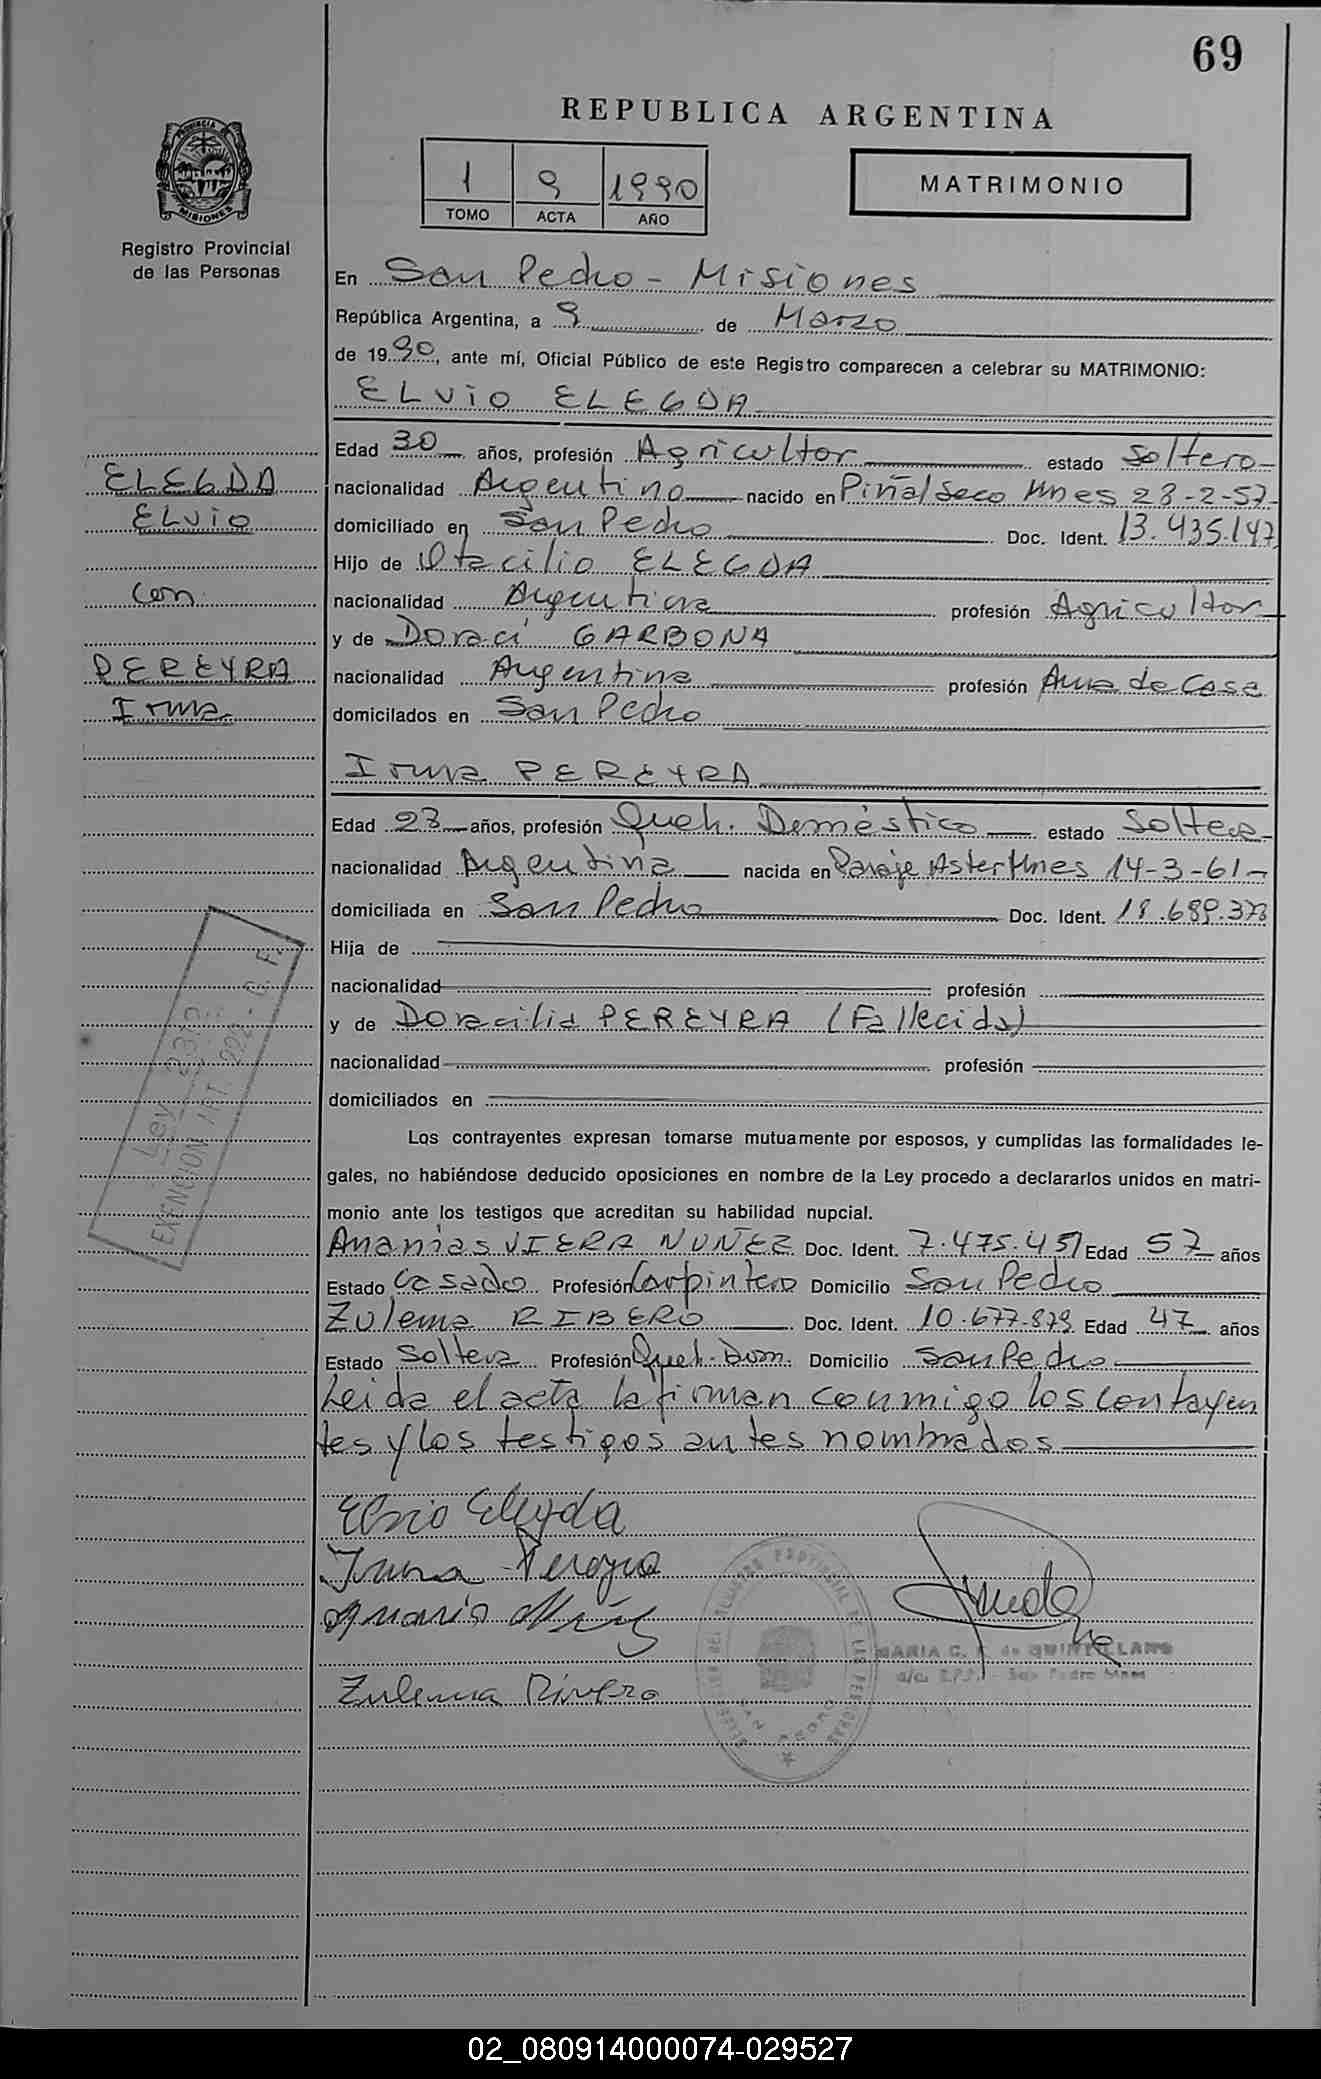 69
REPUBLICA ARGENTINA
1 9 1990
TOMO ACTA AÑO
MATRIMONIO
PROVINCIA DE
MISIONES
Registro Provincial
de las Personas
En San Pedro - Misiones
República Argentina, a 9 de Marzo
de 1990, ante mí, Oficial Público de este Registro comparecen a celebrar su MATRIMONIO:
ELVIO ELEGDA
Edad 30 años, profesión Agricultor estado Soltero
nacionalidad Argentino nacido en Piñal Seco Mnes 23-2-57-
domiciliado en San Pedro Doc. Ident. 13.435.147
Hijo de Otacilio ELEGDA
nacionalidad Argentina profesión Agricultor
y de Doraci GARBONA
nacionalidad Argentina profesión Ama de Casa
domicilados en San Pedro
ELEGDA
Elvio
con
PEREYRA
Irma
Irma PEREYRA
Edad 23 años, profesión Queh. Doméstico estado Soltera
nacionalidad Argentina nacida en Paraje Aster Mnes 14-3-61-
domiciliada en San Pedro Doc. Ident. 18.689.373
Hija de
nacionalidad profesión
y de Doracilia PEREYRA (Fallecida)
nacionalidad profesión
domiciliados en
Ley
EXENCION ART. 222 - C. F.
Los contrayentes expresan tomarse mutuamente por esposos, y cumplidas las formalidades le-
gales, no habiéndose deducido oposiciones en nombre de la Ley procedo a declararlos unidos en matri-
monio ante los testigos que acreditan su habilidad nupcial.
Ananias VIERA NUÑEZ Doc. Ident. 7.475.451 Edad 57 años
Estado Casado Profesión Carpintero Domicilio San Pedro
Zulema RIBERO Doc. Ident. 10.677.879 Edad 47 años
Estado Soltera Profesión Queh. Dom. Domicilio San Pedro
Leida el acta la firman conmigo los contayen
tes y los testigos antes nombrados
Elvio Elegda
Irma Pereyra
Zulema Rivero
REGISTRO PROVINCIAL DE LAS PERSONAS
SAN PEDRO
MARIA C. de QUINTELLANO
San Pedro Mnes
02_080914000074-029527